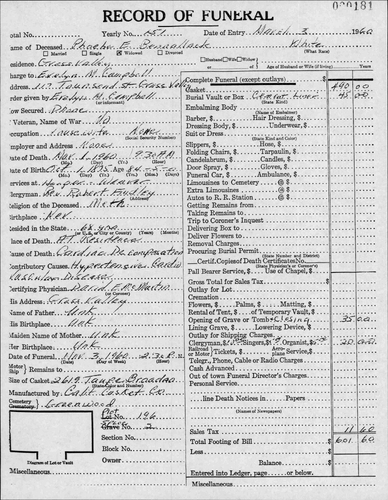 000181
RECORD OF FUNERAL
Total No. Yearly No. 151 Date of Entry March 3 1960
Name of Deceased Phoebe Bennallack White
(What Race)
Married Single Widowed Divorced
Husband Wife Widow
Residence Grass Valley
Age of Husband or Wife (if living)
Charge to Evelyn M. Campbell
Address 117 Townsend St. Grass Valley
Order given by Evelyn M. Campbell
How Secured Phone
Veteran, Name of War no
Occupation Housewife None
(Social Security Number)
Employer and Address None
Date of Death Mar. 1, 1960 9:30 A.M.
Date of Birth Oct. 1875
Services at Hooper-Weaver
Clergyman Rev. Robert
Religion of the Deceased Meth
Birthplace Nev.
Resided in the State 68 yrs
(Years) (Months)
Place of Death At Residence
Cause of Death Cardiac Decompensation
Contributory Causes Hypertensive Cardio
Vascular Disease
Certifying Physician David E.
His Address Grass Valley
Name of Father Unk
His Birthplace Unk
Maiden Name of Mother Unk
Her Birthplace Unk
Date of Funeral Mar. 3, 1960 2:30 P.M.
Size of Casket 2619 Taupe Broadcloth
Manufactured by Calif. Casket Co.
Cemetery Greenwood
Crematory
Lot No. 196
Grave No. 2
Section No.
Block No.
Owner
Diagram of Lot or Vault
Miscellaneous
Complete Funeral (except outlays) 490 00
Casket
Burial Vault or Box 45 00
(State Kind)
Embalming Body
Barber, Hair Dressing,
Dressing Body, Underwear,
Suit or Dress
(State Kind and Color)
Slippers, Hose,
Folding Chairs, Tarpaulin,
Candelabrum, Candles,
Door Spray, Gloves,
Funeral Car, Ambulance,
Limousines to Cemetery @ $
Extra Limousines @ $
Autos to R. R. Station @ $
Getting Remains from
Taking Remains to
Trip to Coroner's Inquest
Delivering Box to
Deliver Flowers to
Removal Charges
Procuring Burial Permit
(State Number and District)
Certif. Copies of Death Certificates No.
(State Physician's or Coroner's)
Pall Bearer Service, Use of Chapel,
Gross Total for Sales Tax
Outlay for Lot
Cremation
Flowers, Palms, Matting,
Rental of Tent, of Temporary Vault,
Opening of Grave or Tomb 35 00
Lining Grave, Lowering Device,
Outlay for Shipping Charges
Clergyman, Singers, Organist, 20 00
Railroad or Motor Tickets, Aero-plane Service
Telgr., Phone, Cable or Radio Charges
Cash Advanced
Out of town Funeral Director's Charges
Personal Service
line Death Notices in Papers
(Names of Newspapers)
Sales Tax 11 60
Total Footing of Bill 601 60
Less
Balance
Entered into Ledger, page or below.
Miscellaneous